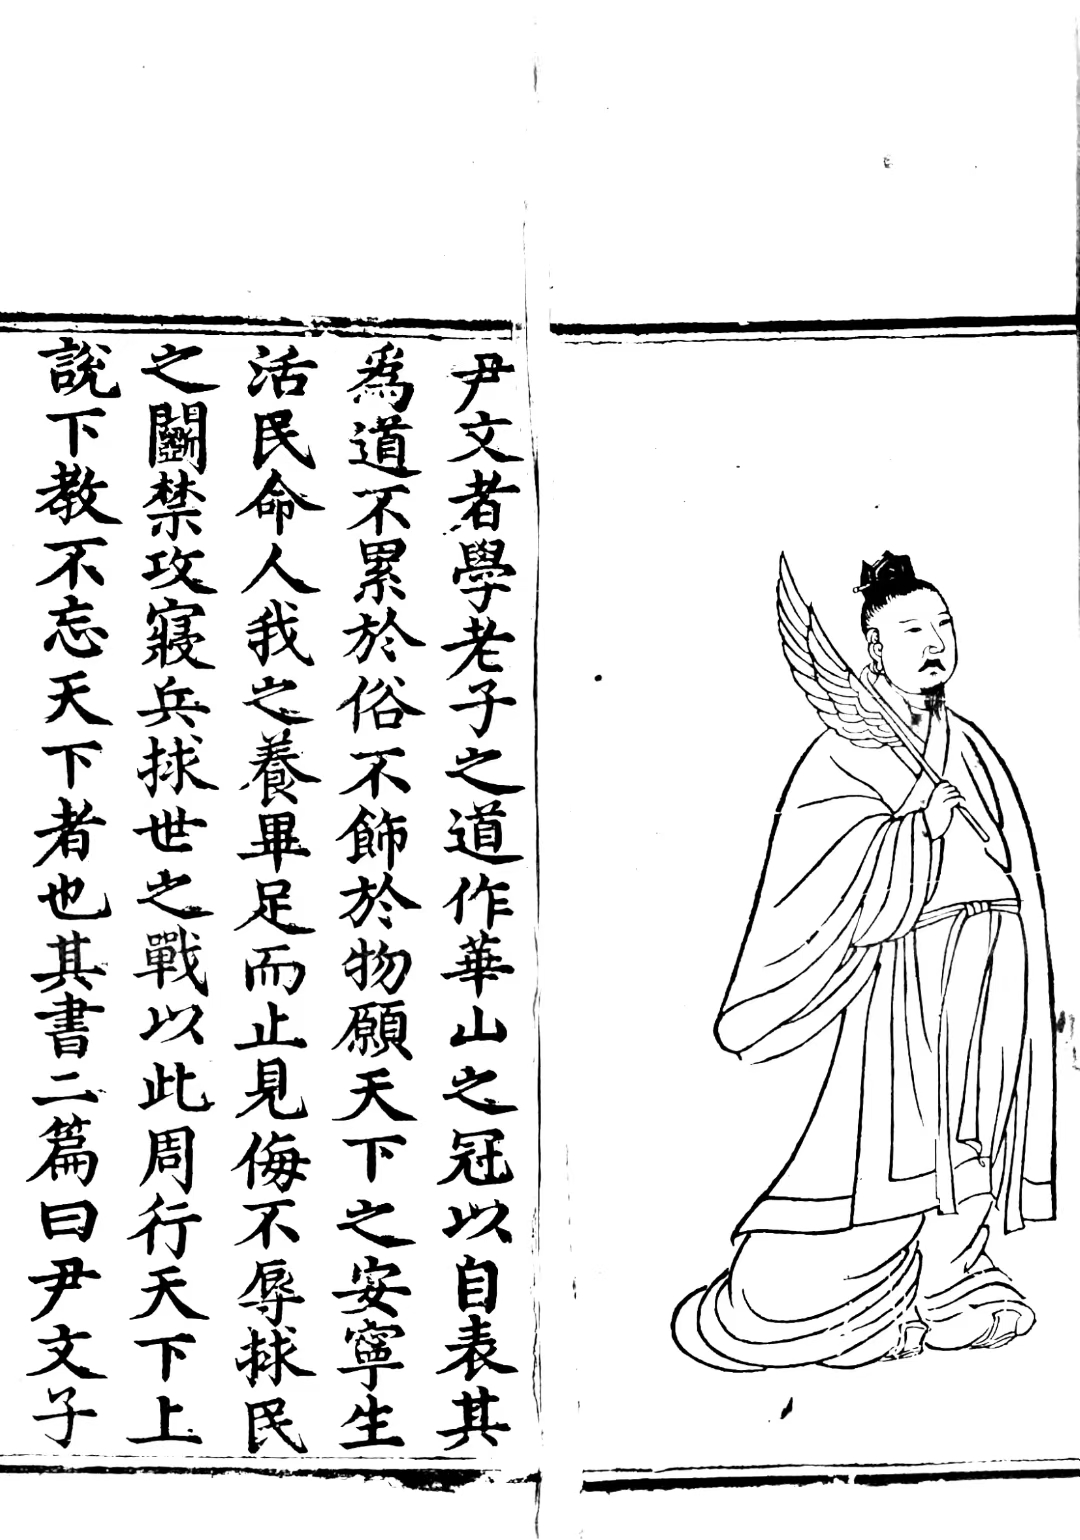 尹文者學老子之道作華山之冠以自表其
爲道不累於俗不飾於物願天下之安寧生
活民命人我之養畢足而止見侮不辱捄民
之鬭禁攻寢兵捄世之戰以此周行天下上
說下教不忘天下者也其書二篇曰尹文子